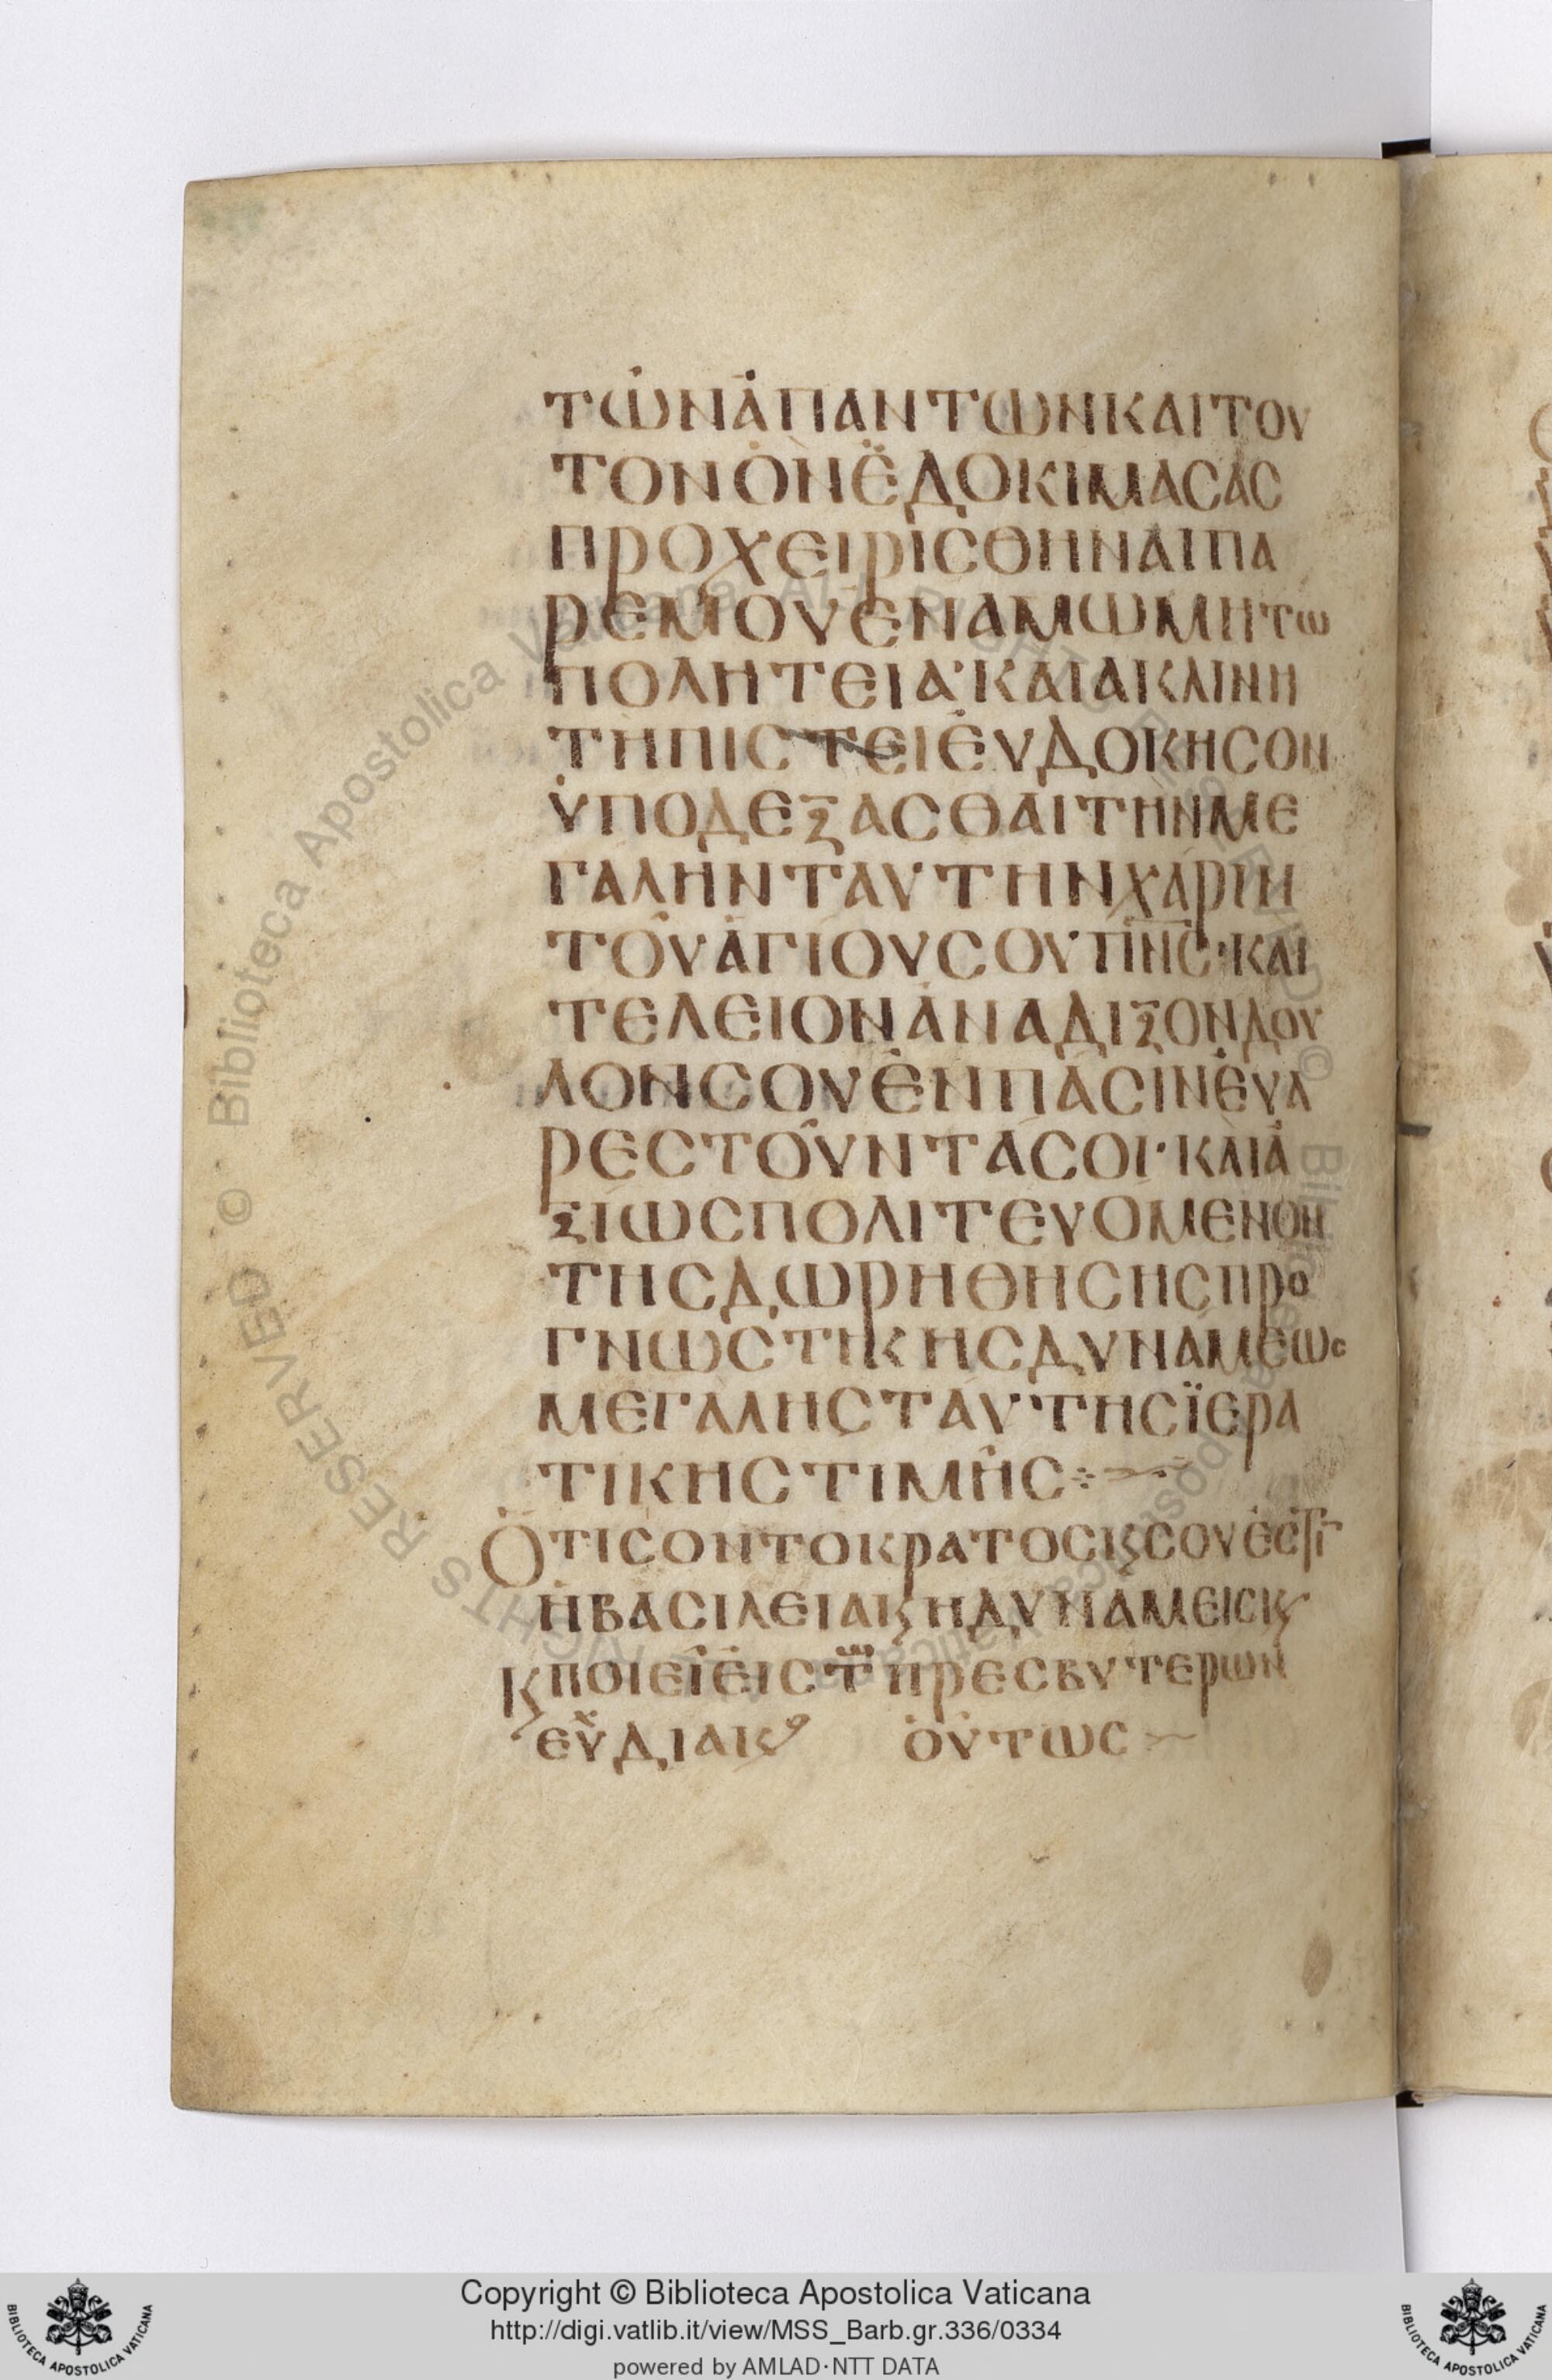 ΤῶΝἁΠΑΝΤωΝΚΑΙΤΟΥ
ΤΟΝὁΝἐΔΟΚΙΜΑϹΑϹ
ΠΡΟΧΕΙΡΙϹΘΗΝΑΙΠΑ
ΡΕΜΟΥΕΝΑΜωΜΗΤω
ΠΟΛΗΤΕΙΑ·ΚΑΙΑΚΛΙΝΗ
ΤΗΠΙϹΤΕΙἐΥΔΟΚΗϹΟΝ
ὑΠΟΔΕΞΑϹΘΑΙΤΗΝΜΕ
ΓΑΛΗΝΤΑΥΤΗΝΧΑΡΙΝ
ΤΟῦἁΓΙΟΥϹΟΥΠΝ̅Ϲ̅·ΚΑΙ
ΤΕΛΕΙΟΝἀΝΑΔΙΞΟΝΔΟΥ
ΛΟΝϹΟΥἐΝΠΑϹΙΝἐΥΑ
ΡΕϹΤΟῦΝΤΑϹΟΙ·ΚΑΙἀ
ΞΙωϹΠΟΛΙΤΕΥΟΜΕΝΟΝ
ΤΗϹΔωΡΗΘΗϹΗϹΠΡΟ
ΓΝωϹΤΙΚΗϹΔΥΝΑΜΕωϹ
ΜΕΓΑΛΗϹΤΑΥΤΗϹΪΕΡΑ
ΤΙΚΗϹΤΙΜῆϹ⁘~
ὍΤΙϹΟΝΤΟΚΡΑΤΟϹΚϗϹΟΥἐϹΤΙ
ἡΒΑϹΙΛΕΙΑϗΗΔΥΝΑΜΕΙϹϗ
ϗΠΟΙΕῖἐΙϹΤῶΠΡΕϹΒΥΤΕΡωΝ
ΕῨΔΙΑΚϗ ὁὐΤωϹ~
Copyright © Biblioteca Apostolica Vaticana
http://digi.vatlib.it/view/MSS_Barb.gr.336/0334
powered by AMLAD·NTT DATA
BIBLIOTECA APOSTOLICA VATICANA
BIBLIOTECA APOSTOLICA VATICANA